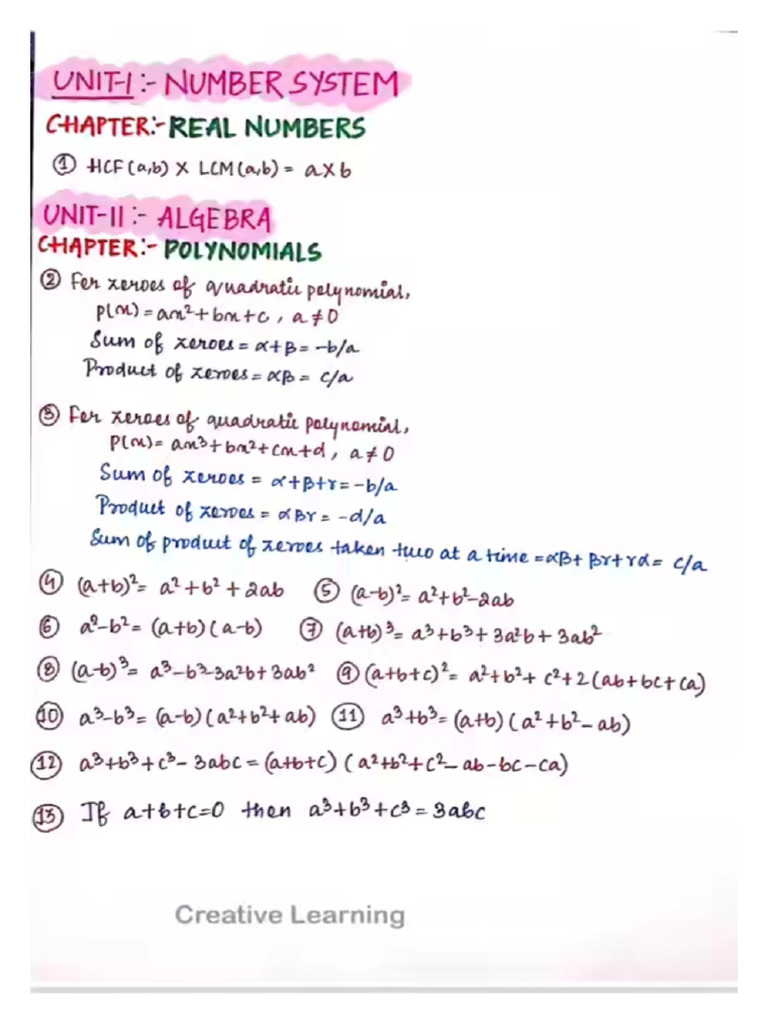 UNIT-I :- NUMBER SYSTEM
CHAPTER:- REAL NUMBERS
① HCF(a,b) X LCM(a,b) = a X b
UNIT-II :- ALGEBRA
CHAPTER:- POLYNOMIALS
② For zeroes of quadratic polynomial,
P(x) = ax²+bx+c, a≠0
Sum of zeroes = α+β = -b/a
Product of zeroes = αβ = c/a
③ For zeroes of quadratic polynomial,
P(x) = ax³+bx²+cx+d, a≠0
Sum of zeroes = α+β+γ = -b/a
Product of zeroes = αβγ = -d/a
Sum of product of zeroes taken two at a time = αβ+βγ+γα = c/a
④ (a+b)² = a²+b²+2ab ⑤ (a-b)² = a²+b²-2ab
⑥ a²-b² = (a+b)(a-b) ⑦ (a+b)³ = a³+b³+3a²b+3ab²
⑧ (a-b)³ = a³-b³-3a²b+3ab² ⑨ (a+b+c)² = a²+b²+c²+2(ab+bc+ca)
⑩ a³-b³ = (a-b)(a²+b²+ab) ⑪ a³+b³ = (a+b)(a²+b²-ab)
⑫ a³+b³+c³-3abc = (a+b+c)(a²+b²+c²-ab-bc-ca)
⑬ If a+b+c=0 then a³+b³+c³ = 3abc
Creative Learning